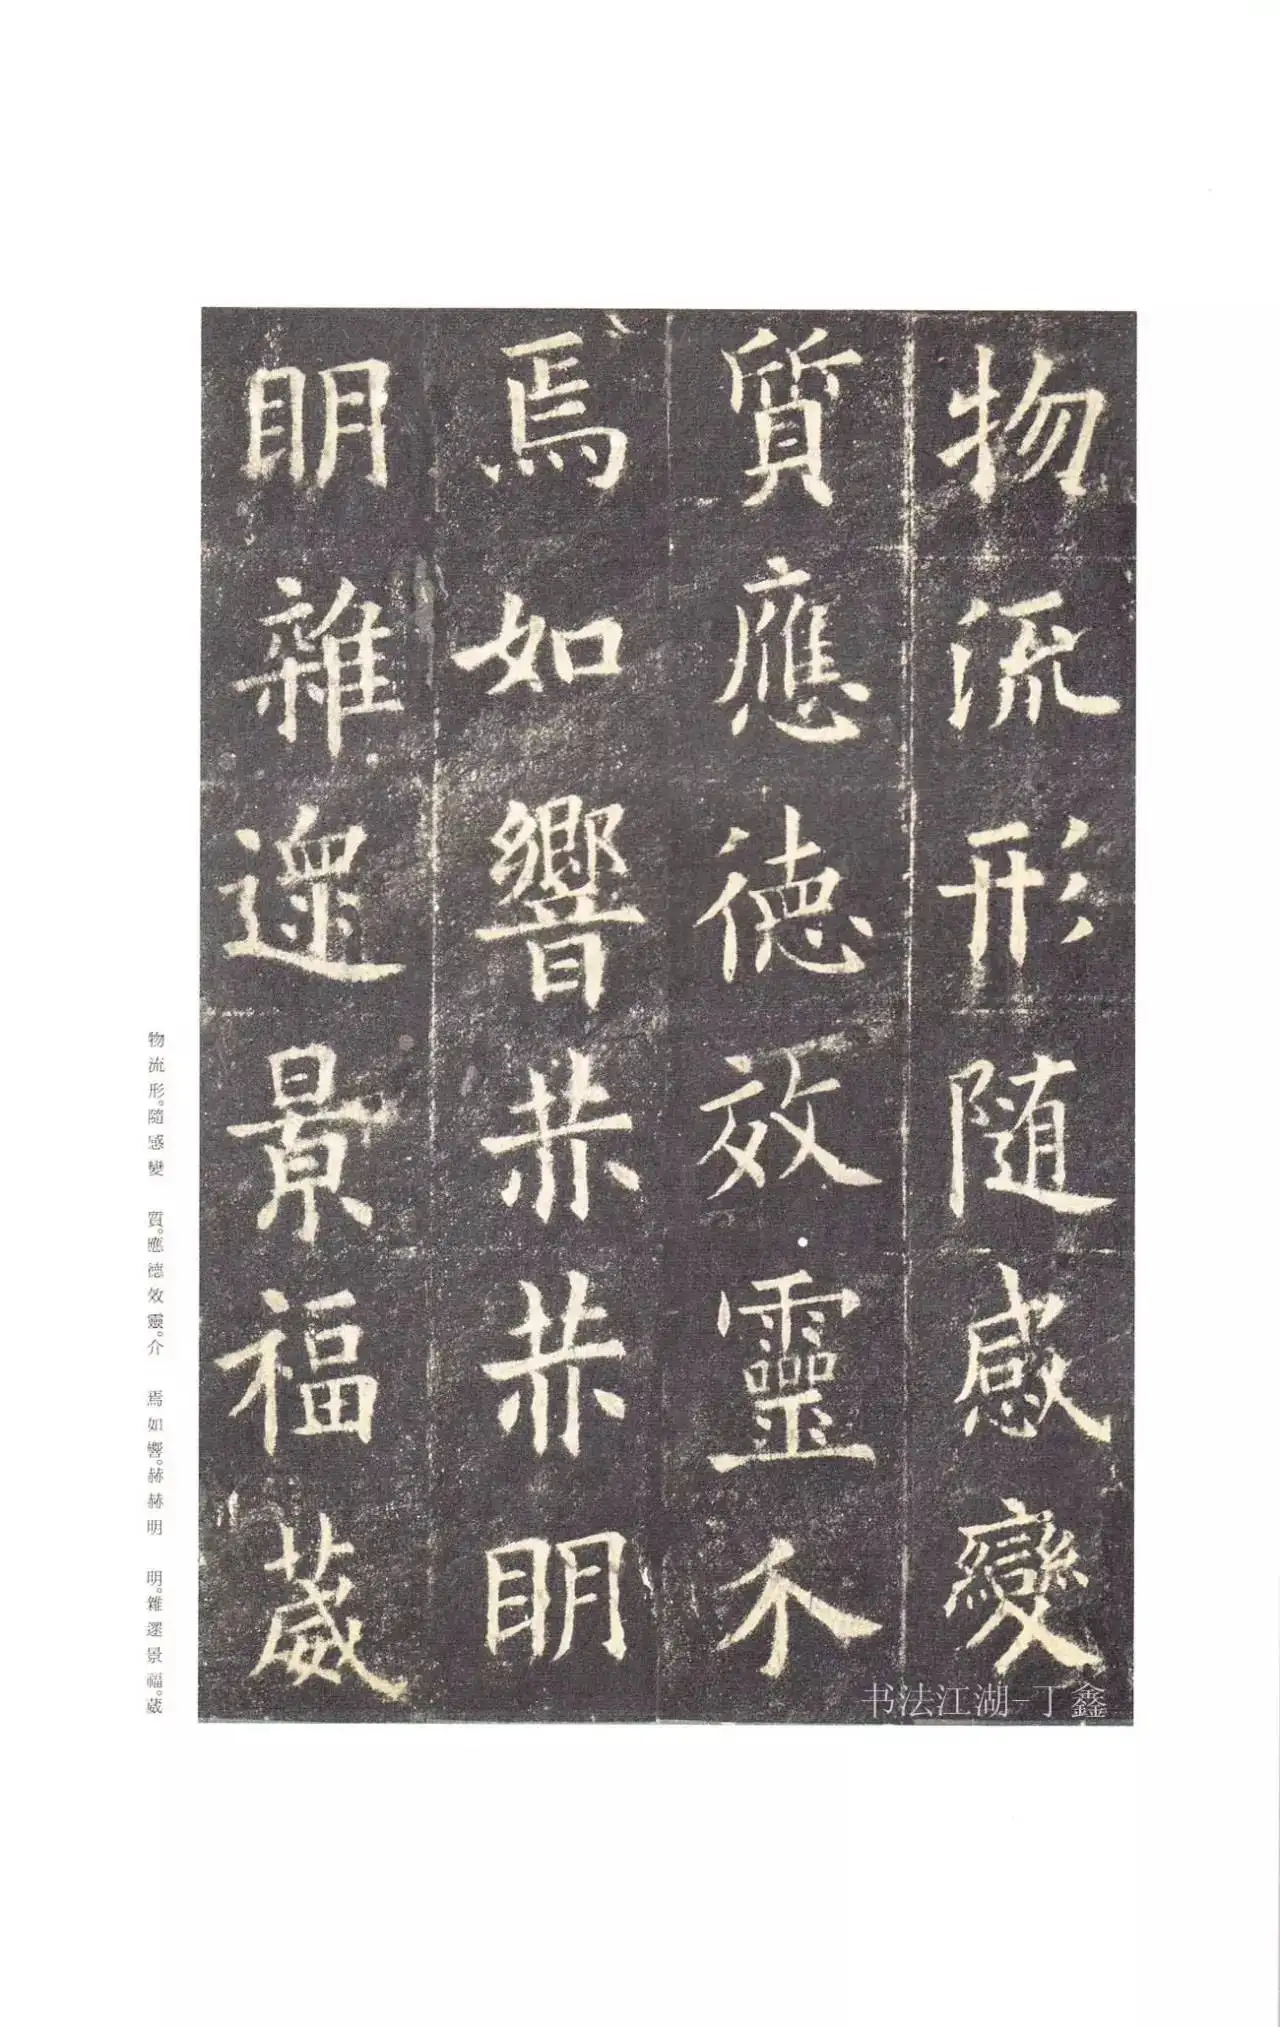 物流形隨感變
質應德效靈介
焉如響赫赫明
明雜遝景福葳
物流形。隨感變　質。應德效靈。介　焉如響。赫赫明　明。雜遝景福。葳
书法江湖-丁鑫